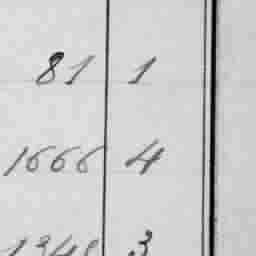 81 1
1666 4
3